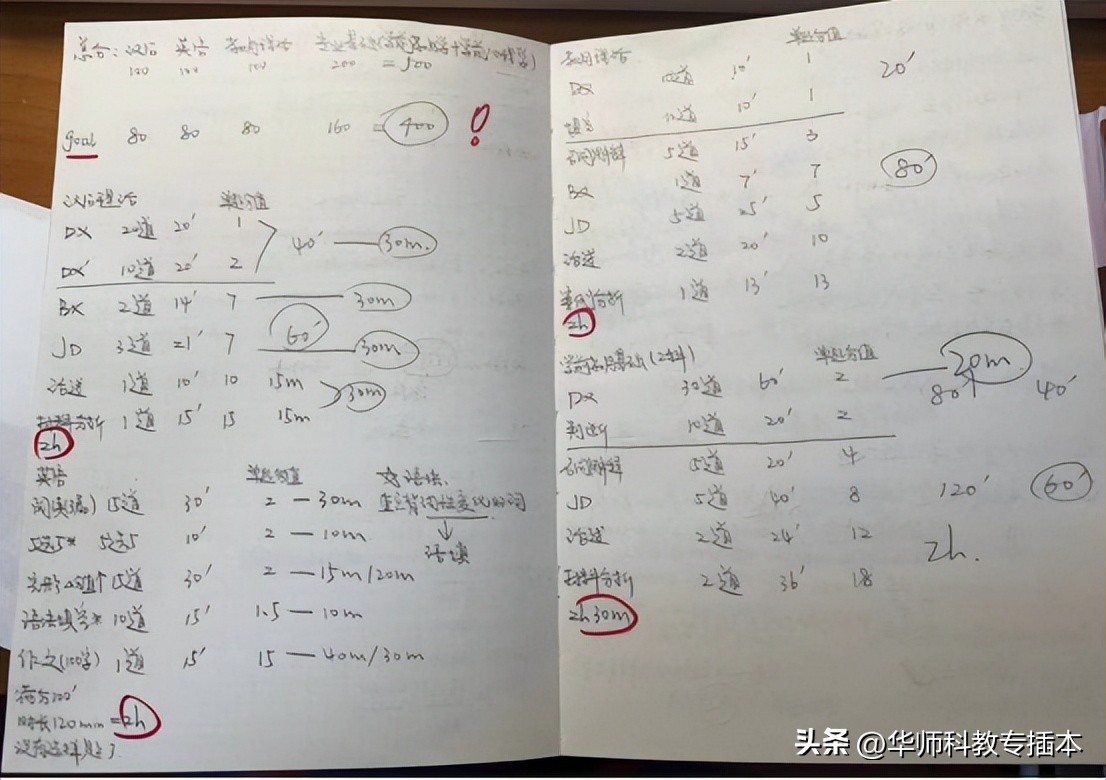 总分：汉语 英语 教育理论 专业基础(学前
100 100 100 200 = 500
goal 80 80 80 160 = 400 !
汉语理论 单题分值
DX 20道 20' 1
DX' 10道 20' 2 40' — 30m.
BX 2道 14' 7 — 30m
60'
JD 3道 21' 7 — 30m
论述 1道 10' 10 15m
30m
材料分析 1道 15' 15 15m
2h
英语 单题分值 ☆语法.
阅读(3篇) 15道 30' 2 — 30m 重点背词性变化的词
↓
5选5* 5选5 10' 2 — 10m 语填
完形 15道 30' 2 — 15m/20m
语法填空* 10道 15' 1.5 — 10m
作文(100字) 1道 15' 15 — 40m/30m
满分100'
时长120min = 2h
没有选择题了
教育理论 单题分值
DX 10道 10' 1 20'
填空 10道 10' 1
名词解释 5道 15' 3
BX 1道 7' 7 80'
JD 5道 25' 5
论述 2道 20' 10
案例分析 1道 13' 13
2h
学前教育基础(2科) 单题分值
DX 30道 60' 2 — 20m
80' 40'
判断 10道 20' 2
名词解释 5道 20' 4
JD 5道 40' 8 120' 60'
论述 2道 24' 12 2h.
材料分析 2道 36' 18
2h30m
头条 @华师科教专插本